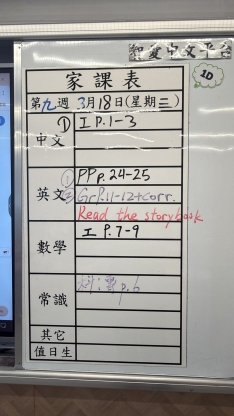 智愛中文平台
10
家課表
第九週 3月18日(星期三)
中文 ① 工 P.1-3
英文 ① PP p.24-25
② Gr P.11-12+corr.
Read the storybook
數學 工 P.7-9
常識 p.6
其它
值日生